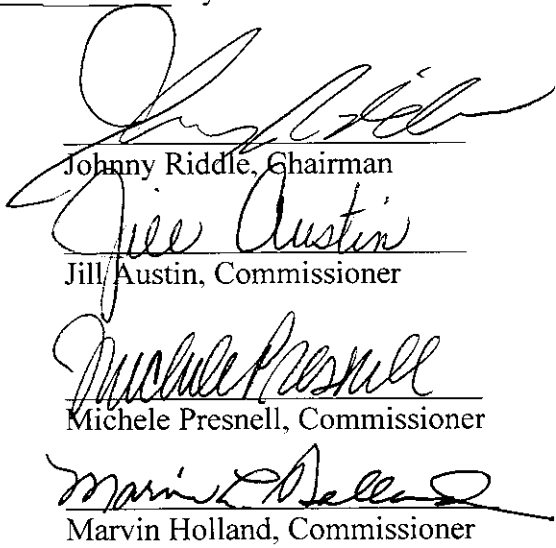 Johnny Riddle
Johnny Riddle, Chairman
Jill Austin
Jill Austin, Commissioner
Michele Presnell
Michele Presnell, Commissioner
Marvin L Holland
Marvin Holland, Commissioner